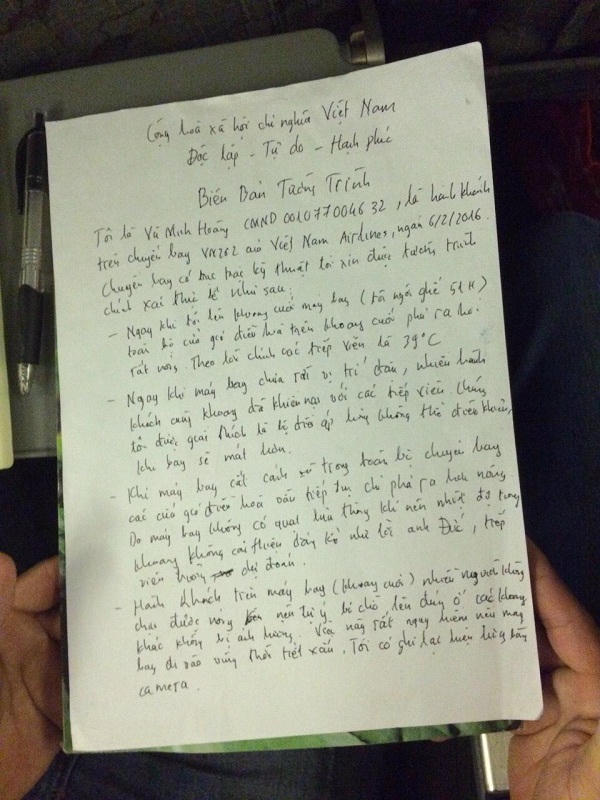 Cộng hoà xã hội chủ nghĩa Việt Nam
Độc lập - Tự do - Hạnh phúc
Biên Bản Tường Trình
Tôi là Vũ Minh Hoàng CMND 001077004632, là hành khách
trên chuyến bay VN262 của Việt Nam Airlines, ngày 6/2/2016.
Chuyến bay có trục trặc kỹ thuật tôi xin được tường trình
chính xác thực tế như sau:
- Ngay khi tôi lên khoang cuối máy bay (tôi ngồi ghế 51H)
toàn bộ cửa gió điều hoà trên khoang cuối phả ra hơi
rất nóng. Theo lời chính các tiếp viên là 39°C
- Ngay khi máy bay chưa rời vị trí đậu, nhiều hành
khách cùng khoang đã khiếu nại với các tiếp viên chúng
tôi được giải thích là hệ thống không thể điều khiển,
khi bay sẽ mát hơn.
- Khi máy bay cất cánh và trong toàn bộ chuyến bay
các cửa gió điều hoà vẫn tiếp tục chỉ phả ra hơi nóng.
Do máy bay không có quạt lưu thông khí nên nhiệt độ trong
khoang không cải thiện đáng kể như lời anh Đức, tiếp
viên trưởng dự đoán.
- Hành khách trên máy bay (khoang cuối) nhiều người không
chịu được nóng nên tự ý bỏ chỗ lên đứng ở các khoang
khác không bị ảnh hưởng. Việc này rất nguy hiểm nếu máy
bay đi vào vùng thời tiết xấu. Tôi có ghi lại hiện tượng bằng
camera.